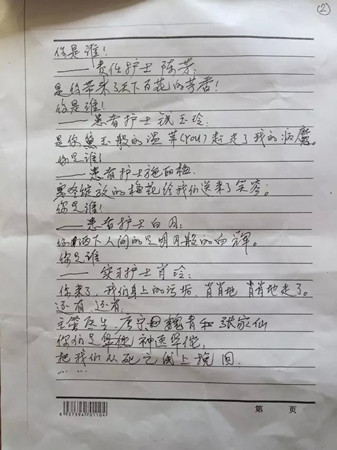 ②
你是谁!
——责任护士 陈芳,
是你带来了天下百花的芳香!
你是谁!
——患者护士 玉玲.
是你黛玉般的温柔(YOU)赶走了我的病魔。
你是谁!
——患者护士施的梅.
绽放的梅花给我们送来了笑容。
你是谁!
——患者护士白月.
你洒下人间的是明月般的白辉。
你是谁
——实习护士肖玲.
你来了,我们身上的污垢,肖肖地 肖肖地走了。
还有,还有,
主管医生 魏青和张家仙
你们是华佗 神医华佗,
把我们从死亡线上挽回.
... ...
6937896701104
第 页